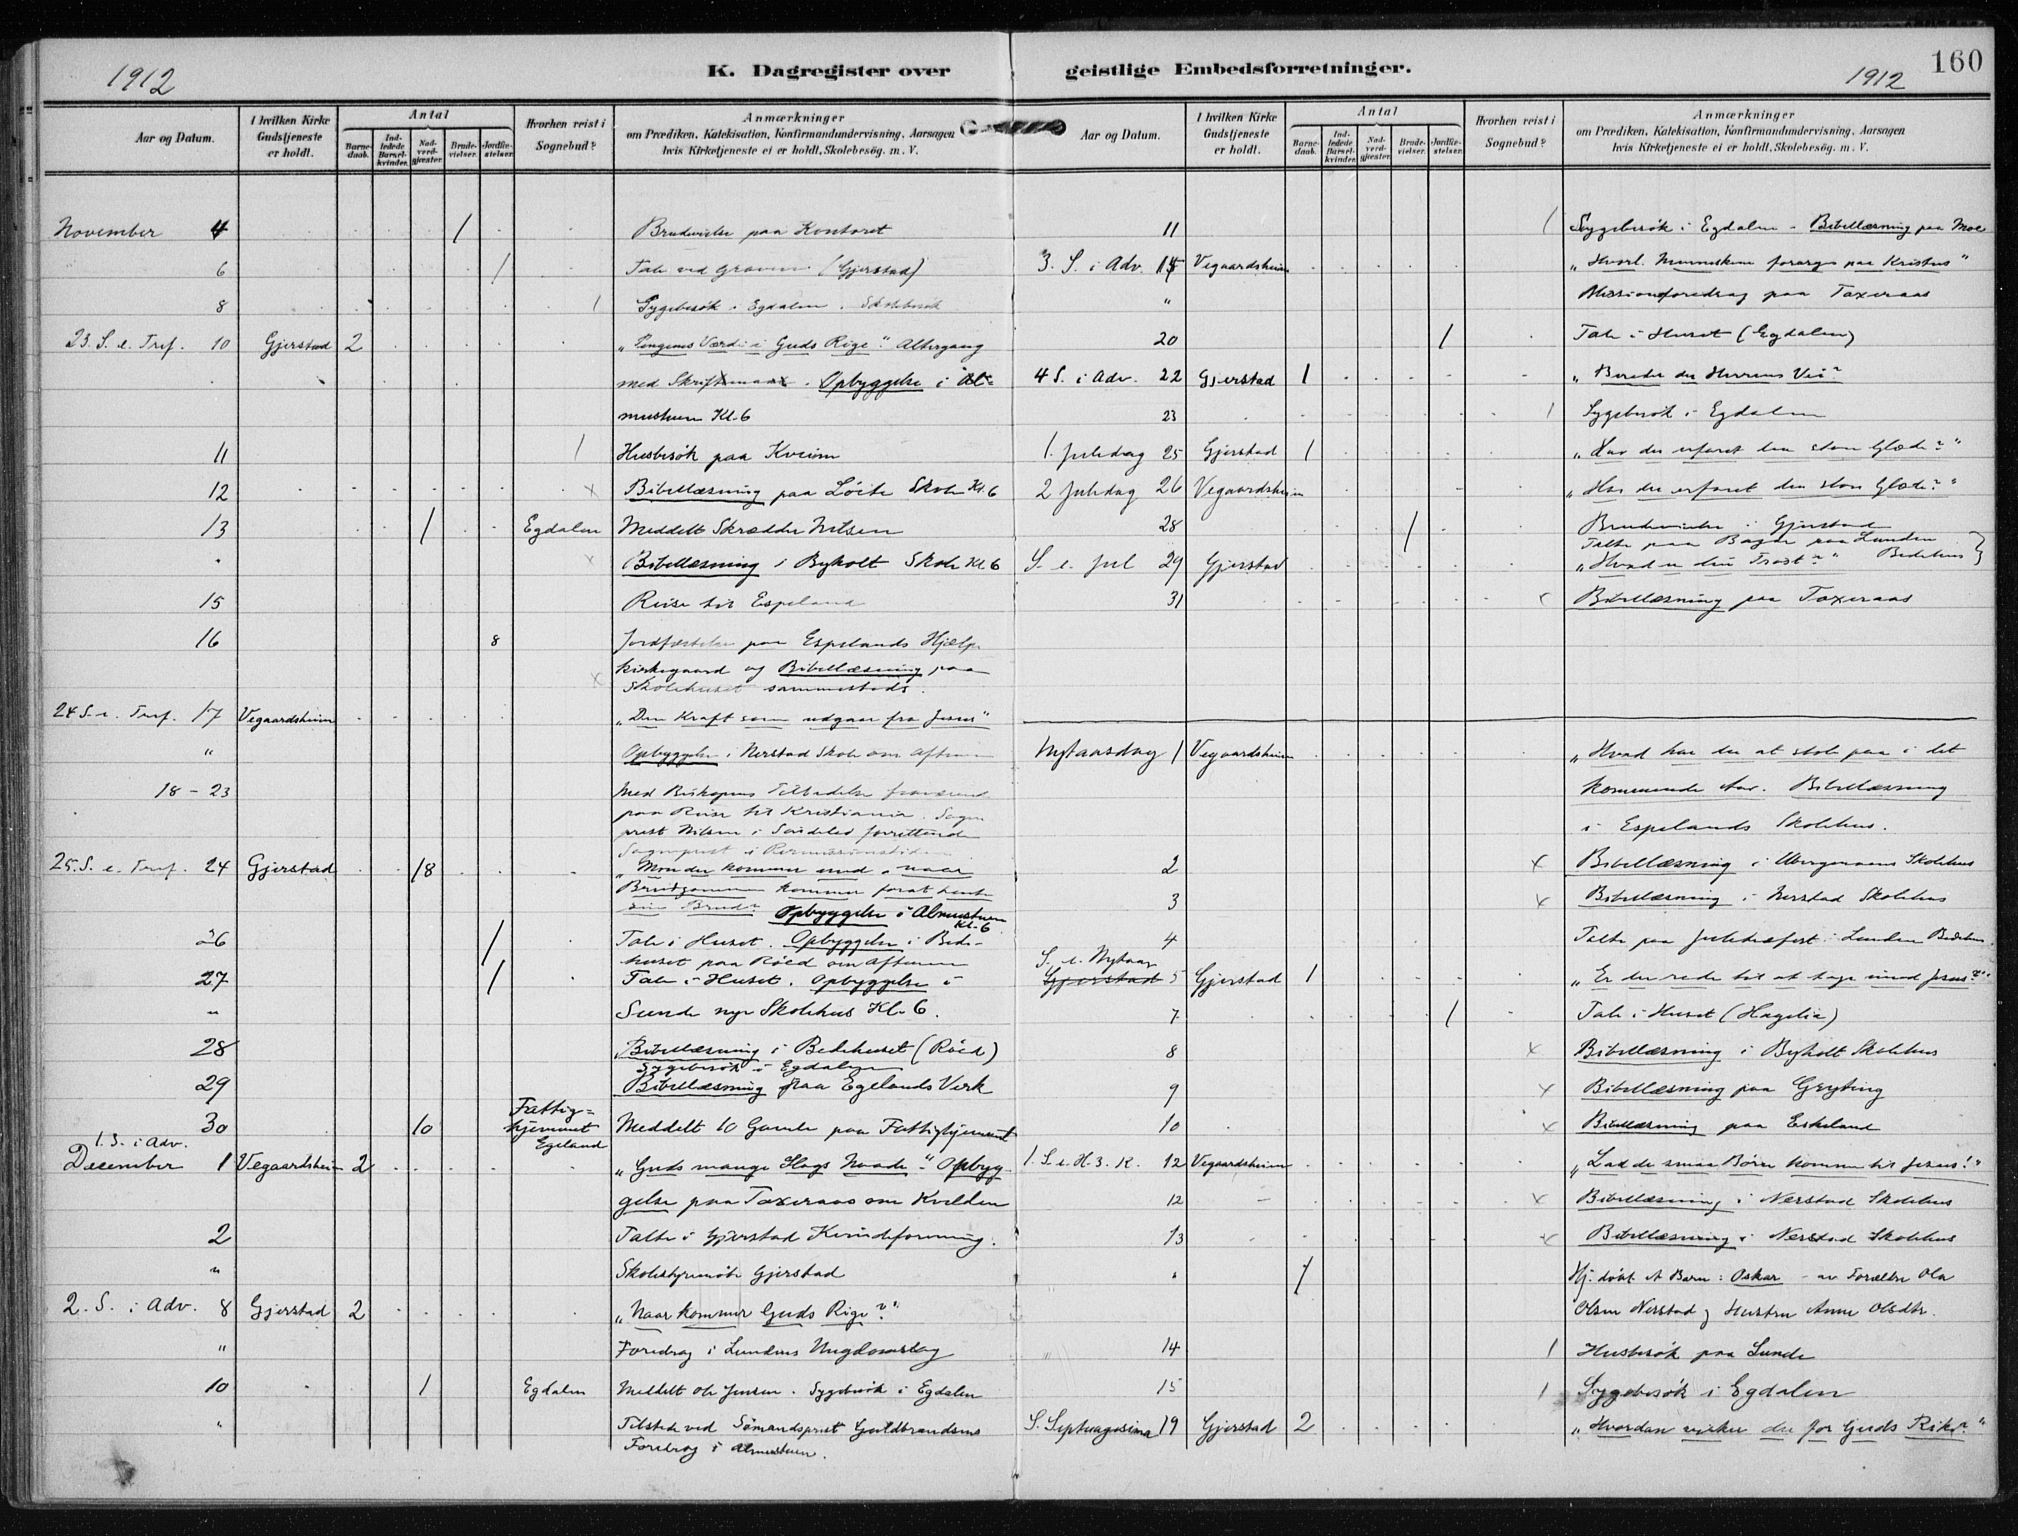 1912
K. Dagregister over
Aar og Datum.
I hvilken Kirke Gudstjeneste er holdt.
Antal
Barnedaab.
Indledede Barselkvinder.
Nadverdgjester.
Brudevielser.
Jordfæstelser.
Hvorhen reist i Sognebud?
Anmærkninger
om Prædiken, Katekisation, Konfirmandundervisning, Aarsagen
hvis Kirketjeneste ei er holdt, Skolebesøg. m. V.
November 4 1 Brudevielse paa Kontoret
" 6 1 Tale ved Graven (Gjerstad)
8 1 Sygebesøk i Egdalen. Skolebesøk
23. S. e. Tref. 10 Gjerstad 2 „Pengens Værdi i Guds Rige". Altergang
med Skriftemaal. Opbyggelse i Al-
mustuen Kl. 6
11 1 Husbesøk paa Kveim
12 x Bibellæsning paa Løite Skole Kl. 6
13 1 Egdalen Meddelt Skrædder Nilsen
" x Bibellæsning i Byholt Skole Kl. 6
15 Reise til Espeland
16 8 Jordfæstelse paa Espelands Hjælpe
kirkegaard og Bibellæsning paa
x Skolehuset sammesteds.
24 S. e. Tref. 17 Vegaardsheim „Den Kraft som udgaar fra Jesus"
" Opbyggelse i Nerstad Skole om Aftenen
18 - 23 Med Biskopens Tilladelse fraværende
paa Reise til Kristiania. Sogne
prest Nilsen i Søndeled forrettende
Sogneprest i Permissionstiden
25. S. e. Tref. 24 Gjerstad 18 „Mon du kommer med, naar
Brudgommen kommer forat hente
sin Brud? Opbyggelse i Almustuen
Kl. 6
26 1 Tale i Huset. Opbyggelse i Bede-
huset paa Røed om Aftenen
27 1 Tale i Huset. Opbyggelse i
" Sunde nye Skolehus Kl. 6.
28 Bibellæsning i Bedehuset (Røed)
Sygebesøk i Egdalen
29 Bibellæsning paa Egelands Verk
30 10 Fattig=
hjemmet
Egeland Meddelt 10 Gamle paa Fattighjemmet
1. S. i Adv.
December 1 Vegaardsheim 2 „Guds mange Slags Naade". Opbyg
gelse paa Taxeraas om Kvelden
2 Talte i Gjerstad Kvindeforening.
" Skolestyremøte Gjerstad
2. S. i Adv. 8 Gjerstad 2 „Naar kommer Guds Rige?"
" Foredrag i Lundens Ungdomslag
10 1 Egdalen Meddelt Ole Jensen. Sygebesøk i Egdalen
" Tilstede ved Sømandsprest Guldbrandsens
Foredrag i Almustuen.
160
1912
geistlige Embedsforretninger.
Aar og Datum.
I hvilken Kirke Gudstjeneste er holdt.
Antal
Barnedaab.
Indledede Barselkvinder.
Nadverdgjester.
Brudevielser.
Jordfæstelser.
Hvorhen reist i Sognebud?
Anmærkninger
om Prædiken, Katekisation, Konfirmandundervisning, Aarsagen
hvis Kirketjeneste ei er holdt, Skolebesög. m. V.
11 1 Sygebesøk i Egdalen - Bibellæsning paa Moe
3. S. i Adv. 15 Vegaardsheim „Hvorl. Menneskene forarges paa Kristus"
" Missionsforedrag paa Taxeraas
20 1 Tale i Huset (Egdalen)
4 S. i Adv. 22 Gjerstad 1 „Bered du Herrens Vei?
23 1 Sygebesøk i Egdalen
1. Juledag 25 Gjerstad 1 „Har du erfaret den store Glæde?"
2 Juledag 26 Vegaardsheim „Har du erfaret den store Glæde?"
28 1 Brudevielse i Gjerstad
Talte paa Basar paa Lunden
S. e. Jul 29 Gjerstad „Hvad er din Trøst?" Bedehus
31 x Bibellæsning paa Taxeraas
Nytaarsdag 1 Vegaardsheim „Hvad har du at stole paa i det
kommende Aar. Bibellæsning
i Espelands Skolehus.
2 x Bibellæsning i Skolehus
3 x Bibellæsning i Nerstad Skolehus
4 Talte paa Juletræfest i Lunden Bedehus.
S. e. Nytaar
Gjerstad 5 Gjerstad 1 „Er du rede til at tage imod Jesus?"
7 1 Tale i Huset (Hagelia)
8 x Bibellæsning i Byholt Skolehus
9 x Bibellæsning paa Gryting
10 x Bibellæsning paa Eskeland
1. S. e. H. 3. K. 12 Vegaardsheim „Lad de smaa Børn komme til Jesus!"
12 x Bibellæsning i Nerstad Skolehus
13 x Bibellæsning i Nerstad Skolehus
" 1 Hj. døbt et Barn: Oskar - av Forældre Ola
Olsen Nerstad og Hustru Anne Olsdtr.
" 14 1 Husbesøk paa Sunde
15 1 Sygebesøk i Egdalen
S. Septuagesima 19 Gjerstad 2 „Hvordan virker du for Guds Rike?"